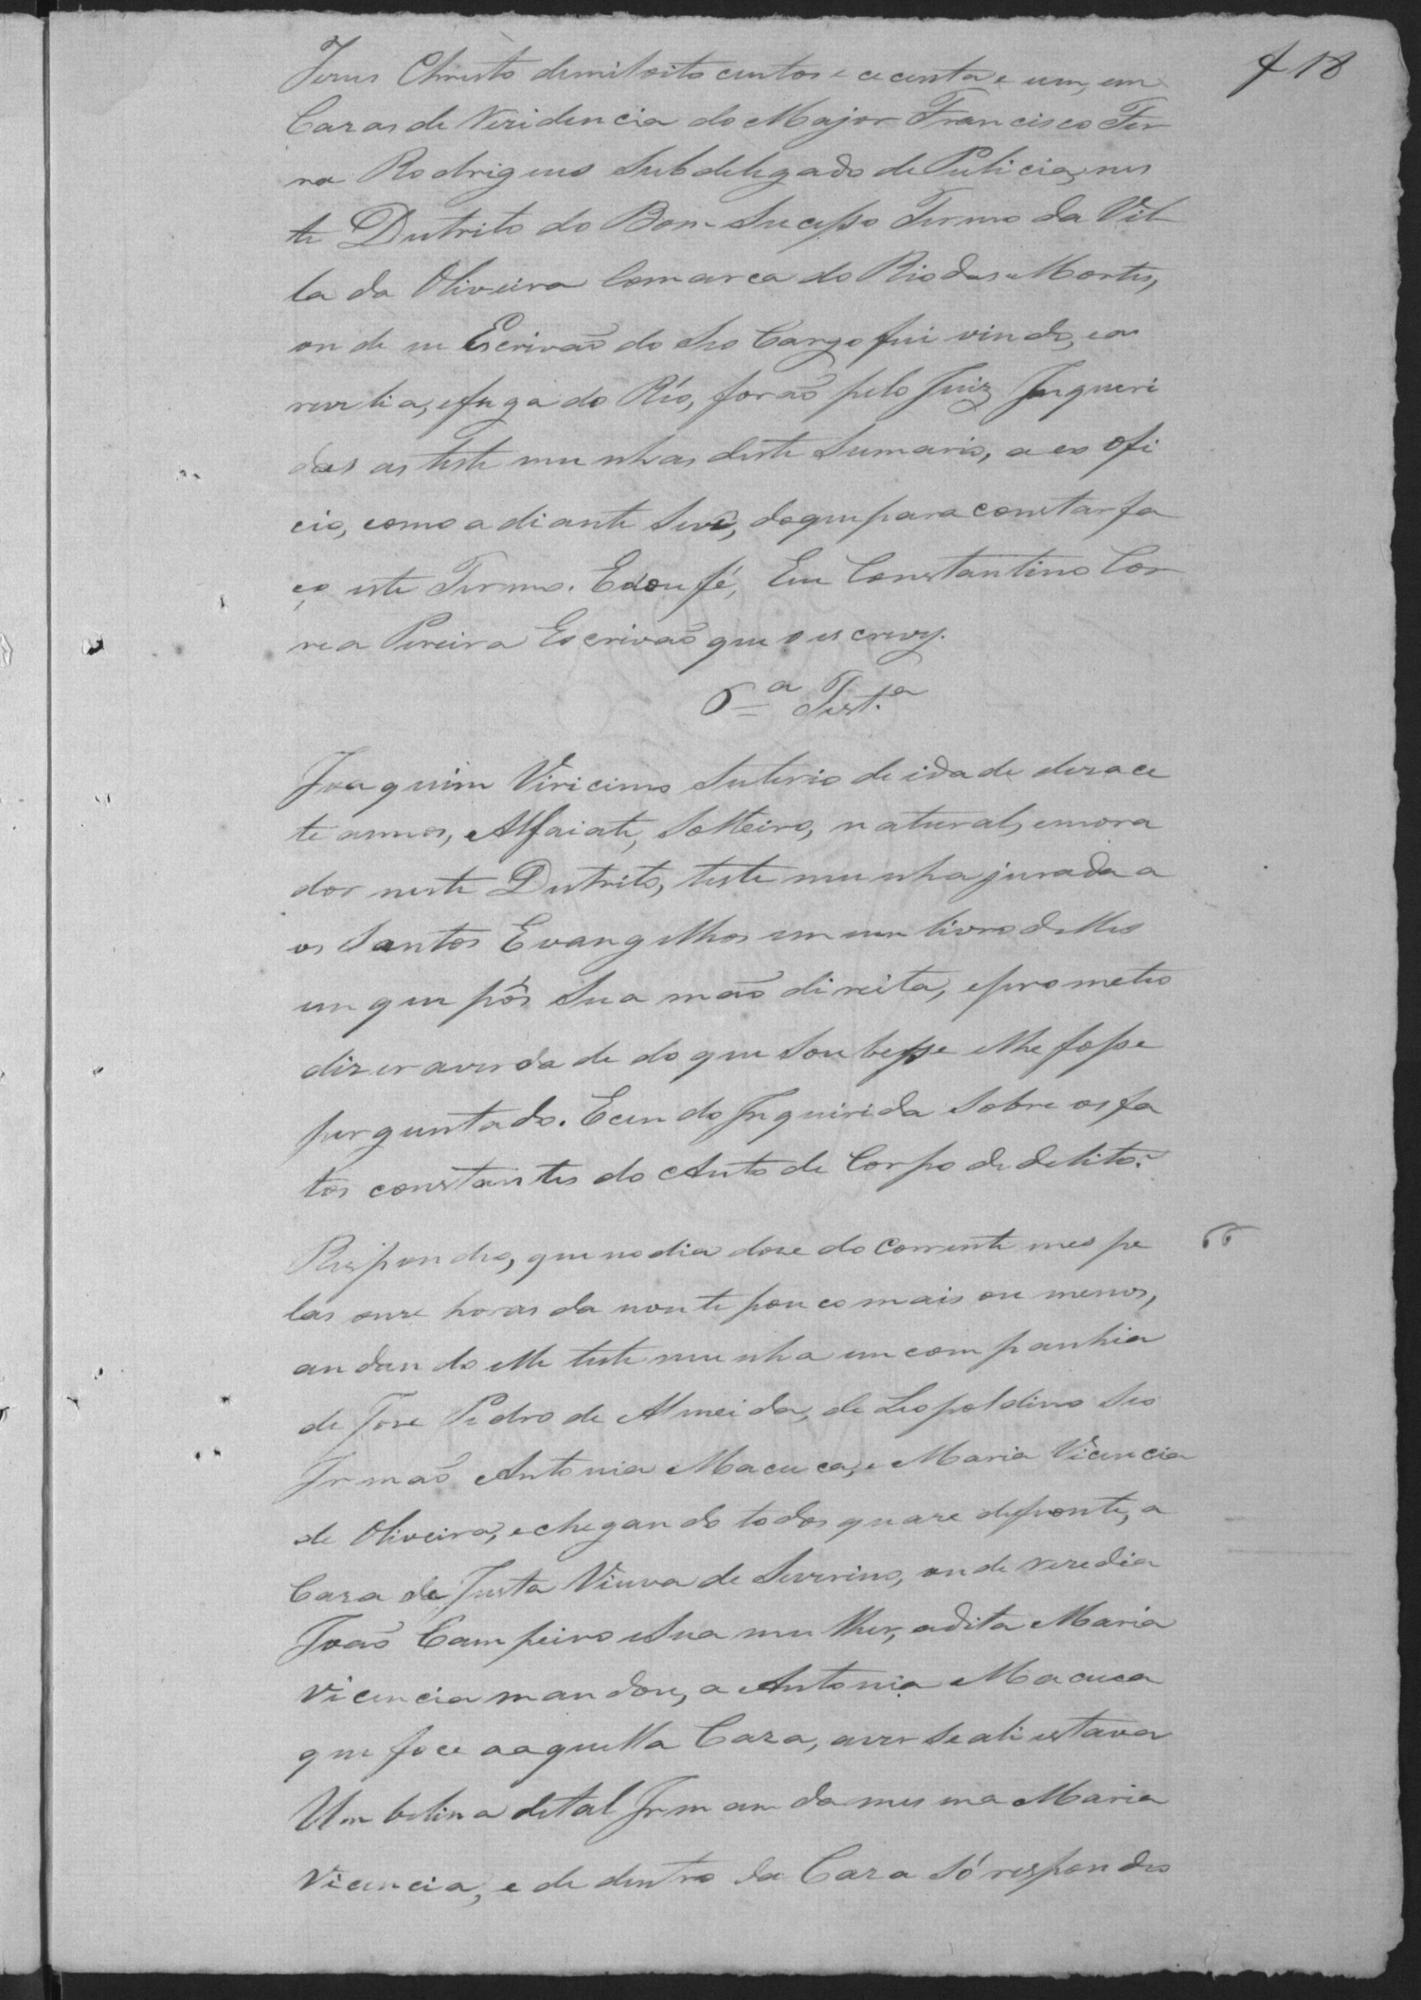 f 18
Jezus Christo demil oito centos e cecenta e um, em
Cazas de Rezidencia do Major Francisco Fer
ra Rodrigues Subdelegado de Pulicia, nes
te Destrito do Bom Sucesso Termo da Vil
la da Oliveira Comarca do Rio das Mortes,
onde eu Escrivaõ do Seo Cargo fui vindo, e a
revelia, e fuga do Réo, foraõ pelo Juiz Inqueri
das as teste munhas deste Sumario, a ex ofi
cio, como a diante Se vê, do que para constar fa
ço este Termo. E dou fé, Eu Constantino Cor
rea Pereira Escrivaõ que o escrevy.
6ª Test.ª
Joaquim Viricimo Suterio de idade dezace
te annos, Alfaiate, Solteiro, natural, e mora
dor neste Destrito, teste munha jurada a
os Santos Evangelhos em um livro delles
em que pôs Sua maõ direita, e prometeo
dizer a verdade do que Soubesse e lhe fosse
perguntado. E cendo Inquirida Sobre os fa
tos constantes do Auto de Corpo de delito.
Respondeo, que no dia doze do Corrente mes pe
las onze horas da noute pouco mais ou menos,
andando elle teste munha em com panhia
de Joze Pedro de Almeida, de Leopoldino Seo
Irmaõ Antonia Macuca, e Maria Vicencia
de Oliveira, e chegando todos quaze defronte, a
Caza de Justa Viuva de Severino, onde rezedia
Joaõ Campeiro e Sua mulher, a dita Maria
Vicencia mandou, a Antonia Macuca
que foce a aquella Caza, a ver Se ali estava
Umbelina de tal Irman da mesma Maria
Vicencia, e de dentro da Caza Só respondeo